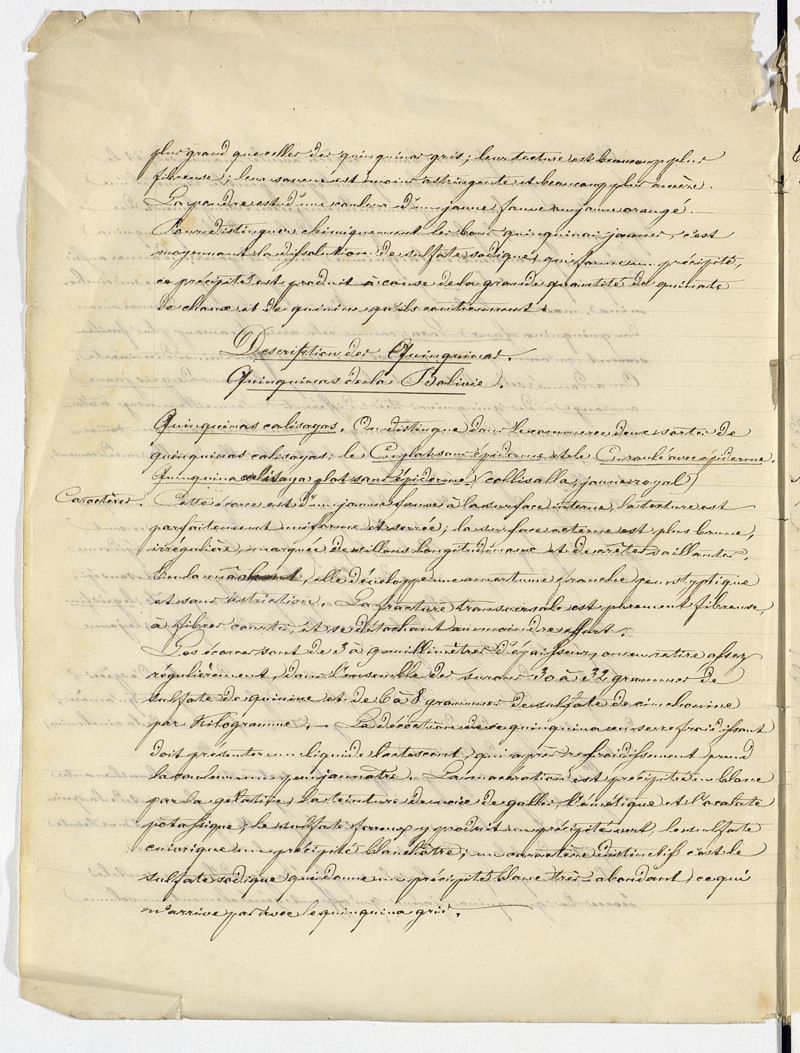 plus grand que celles des quinquinas gris; leur texture est beaucoup plus
fibreuse; leur saveur est moins astringente et beaucoup plus amère.
La poudre est d'une couleur d'un jaune fauve au jaune orangé.—
Pour distinguer chimiquement les bons quinquinas jaunes, c'est
moyennant la dissolution de sulfate sodique, qui forme un précipité,
ce précipité est produit à cause de la grande quantité de quinate
de chaux et de quinine qu'ils contiennent.
Description des Quinquinas.
Quinquinas de la Bolivie.
Quinquinas calisayas. On distingue dans le commerce deux sortes de
quinquinas calisayas; le Cⁿ plat sans épiderme et le Cⁿ roulé avec épiderme.
Quinquina calisaya plat sans épiderme. (collisalla, jaune royal)
Caractères. Cette écorce est d'un jaune fauve à la surface interne, la texture est
parfaitement uniforme et serrée; la surface externe est plus brune,
irrégulière, marquée de sillons longitudinaux et de arêtes saillantes.
En la mâchant, elle développe une amertume franche peu styptique
et sans astriction. La fracture transversale est purement fibreuse,
à fibres courtes, et se détachant au moindre effort.
Les écorces sont de 3 à 9 millimètres d'épaisseur, on en retire assez
régulièrement, dans l'ensemble des surons 30 à 32 grammes de
sulfate de quinine et de 6 à 8 grammes de sulfate de cinchonine
par Kilogramme. — La décoction de ce quinquina en se refroidissant
doit présenter un liquide lactescent, qui après refroidissement prend
la couleur un peu jaunâtre. La macération est précipitée en blanc
par la gélatine, la teinture de noix de galles, l'émétique et l'oxalate
potassique; le sulfate ferreux y produit un précipité vert, le sulfate
cuivrique un précipité blanchâtre; un caractère distinctif c'est le
sulfate sodique qui donne un précipité blanc très abondant, ce qui
n'arrive pas avec le quinquina gris.